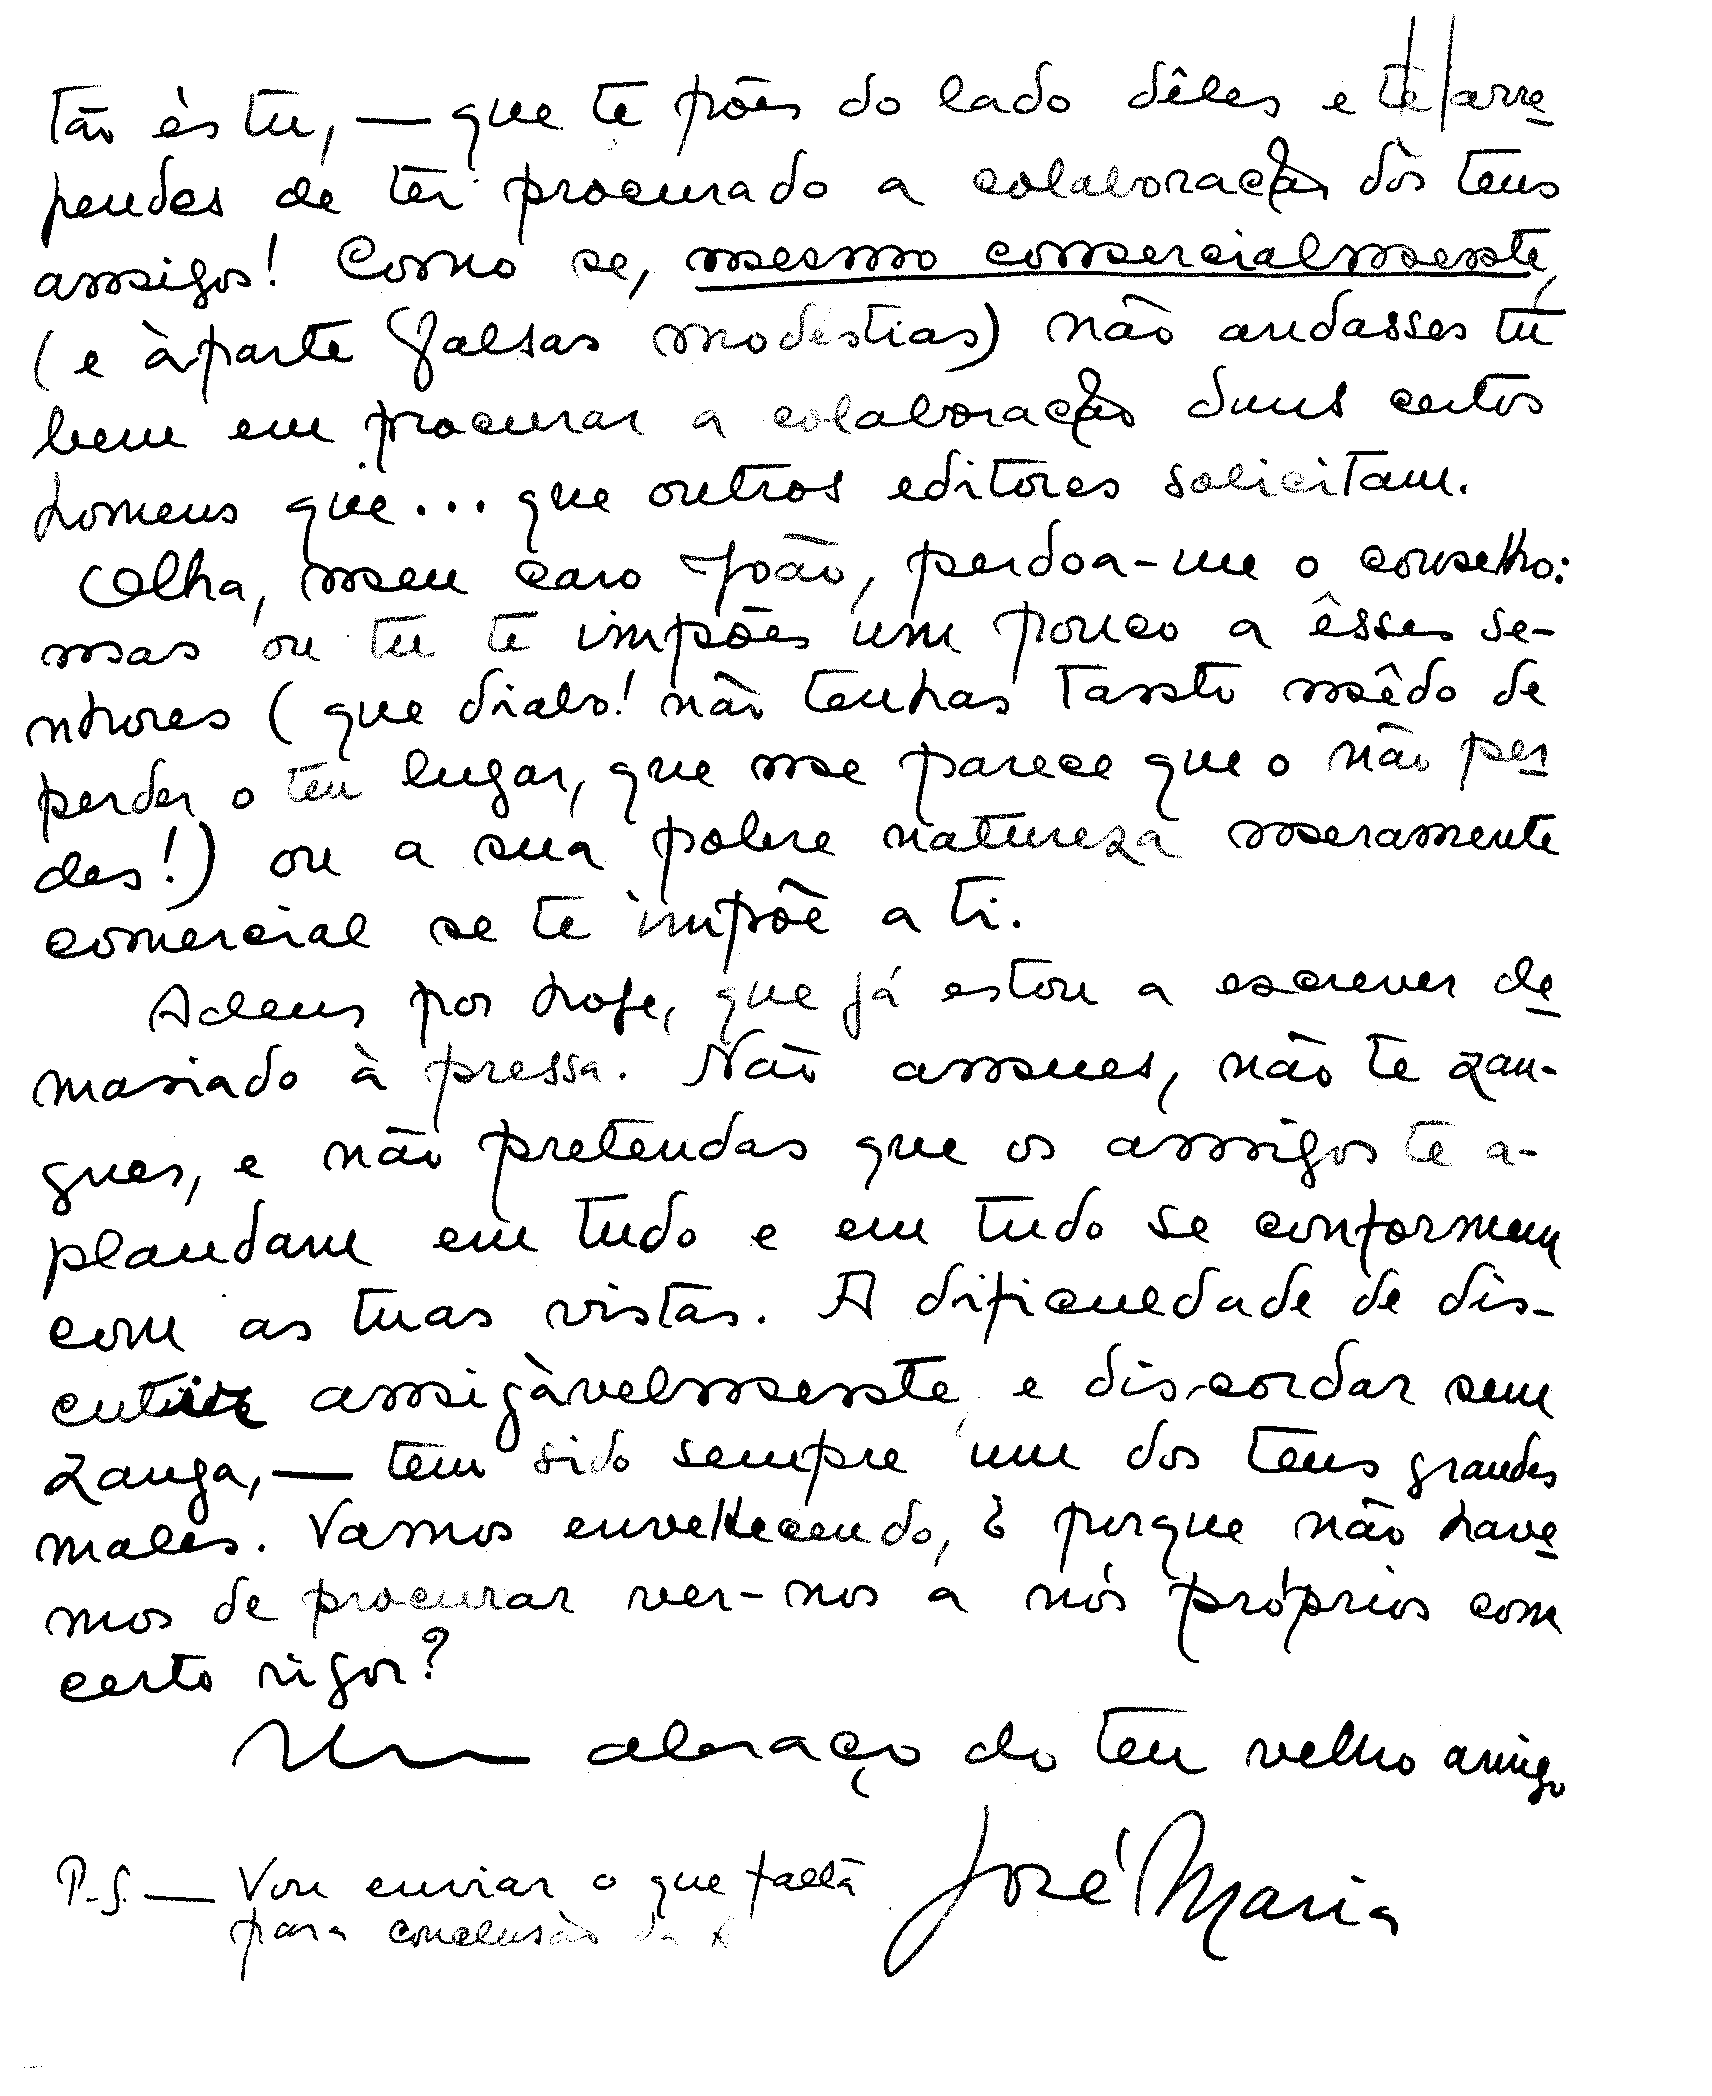 tão és tu, — que te pões do lado dêles e te arre-
pendes de ter procurado a colaboração dos teus
amigos! Como se, mesmo comercialmente,
(e àparte falsas modéstias) não andasses tu
bem em procurar a colaboração duns certos
homens que... que outros editores solicitam.
Olha, meu caro João, perdoa-me o conselho:
mas ou tu te impões um pouco a êsses se-
nhores (que diabo! não tenhas tanto mêdo de
perder o teu lugar, que me parece que o não per-
des!) ou a sua pobre natureza meramente
comercial se te impõe a ti.
Adeus por hoje, que já estou a escrever de-
masiado à pressa. Não amues, não te zan-
gues, e não pretendas que os amigos te a-
plaudam em tudo e em tudo se conformem
com as tuas vistas. A dificuldade de dis-
cutir amigàvelmente, e discordar sem
zanga, — tem sido sempre um dos teus grandes
males. Vamos envelhecendo, e porque não have-
mos de procurar ver-nos a nós próprios com
certo rigor?
Um abraço do teu velho amigo
José Maria
P.S. — Vou enviar o que falta
para conclusão da